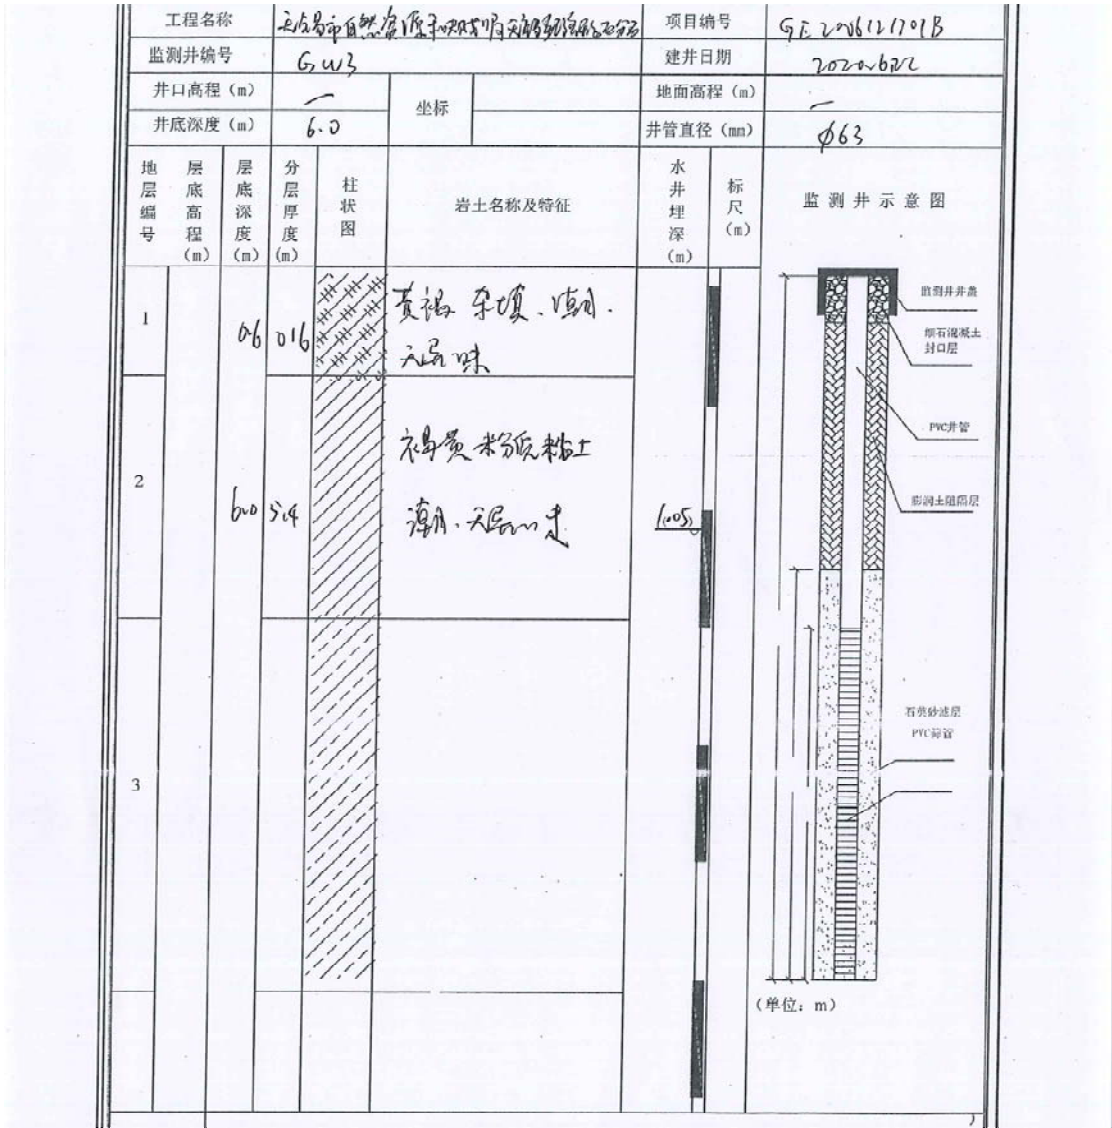 工程名称 无锡市自然资源和规划 项目编号 GE2006121701B
监测井编号 GW3 建井日期 2020.6.22
井口高程（m） — 坐标 地面高程（m） —
井底深度（m） 6.0 井管直径（mm） φ63
地层编号 层底高程(m) 层底深度(m) 分层厚度(m) 柱状图 岩土名称及特征 水井埋深(m) 标尺(m) 监测井示意图
1 0.6 0.6 黄褐 杂填、潮、
无异味
2 6.0 5.4 褐黄 粉质粘土
潮、无异味
1.005
3
监测井井盖
细石混凝土
封口层
PVC井管
膨润土阻隔层
石英砂滤层
PVC筛管
（单位：m）